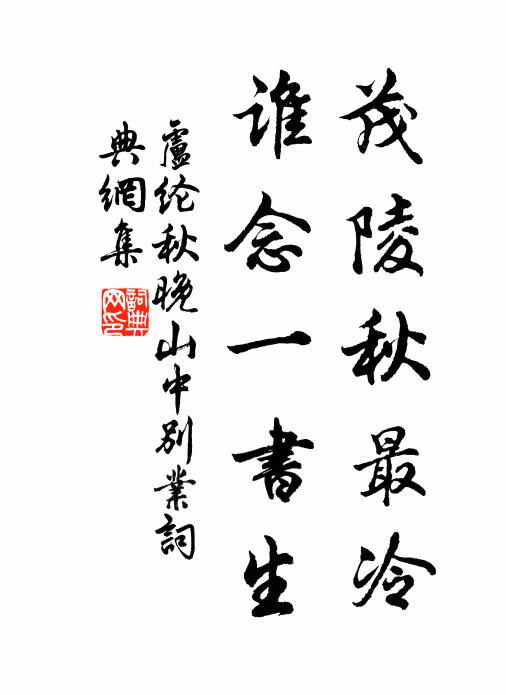 茂陵秋最冷
誰念一書生
盧纶秋晚山中别業詞
典網集
詞典
网印